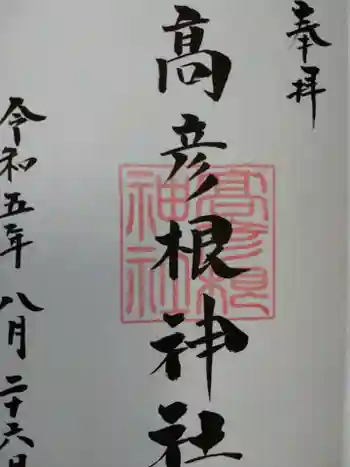 奉拝
髙彦根神社
髙彦根神社
令和五年八月二十六日